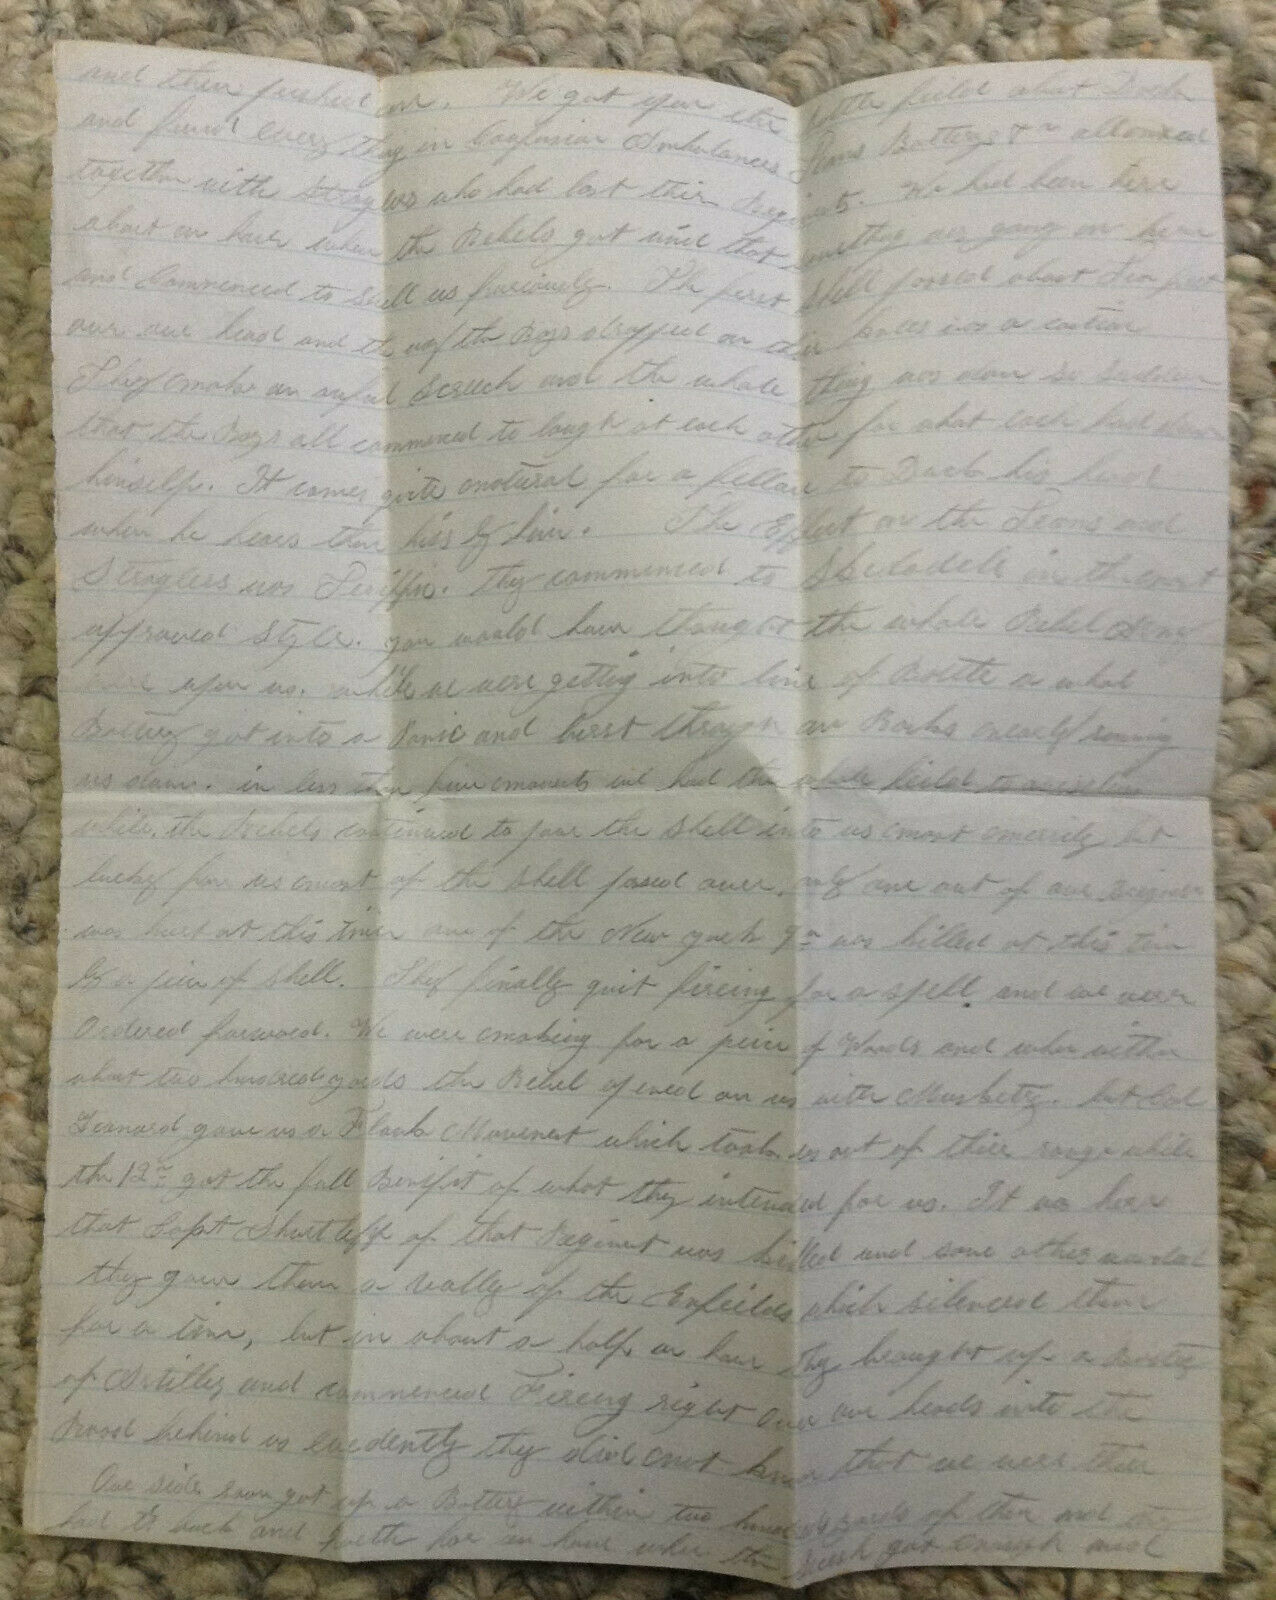 and then pushed on. We got upon the battle field about Dark
and found every thing in Confusion Ambulances Teams Battery & all mixed
together with Straglers who had lost their Regiments. We had been here
about an hour when the Rebels got wind that something was going on here
and Commenced to Shell us furiously. The first Shell passed about Ten feet
over our head and the way the Boys dropped on their was a caution
They make an awful Screech and the whole thing was done so sudden
that the Boys all commenced to laugh at each other for what each had done
himself. It comes quite natural for a fellow to Duck his head
when he hears them hiss by him. The Effect on the Teams and
Straglers was Teriffic. They commenced to Skedadele in the most
approved Style. you would have thought the whole Rebel Army
were upon us. while we were getting into line of Battle a whole
Battery got into a Panic and burst through our Ranks nearly running
us down. in less than five moments we had the whole field to ourselves
while the Rebels continued to pour the Shell into us most merrily but
lucky for us most of the Shell passed over. only one out of our Regiment
was hurt at this time one of the New york 9th was killed at this time
by a piece of Shell. They finally quit fireing for a spell and we were
Ordered forward. We were making for a piece of Woods and when within
about two hundred yards the Rebel opened on us with Musketry. but Col
Leonard gave us a Flank Movement which took us out of their range while
the 12th got the full Benifit of what they intended for us. It was here
that Capt Shurtleff of that Regiment was killed and some others wounded
they gave them a volley of the Enfields which silenced them
for a time, but in about a half an hour they brought up a Battery
of Artillry and commenced Fireing right over our heads into the
Wood behind us evedently they did not know that we were there
Our side soon got up a Battery within two hundred yards of them and they
had it back and forth for an hour when the Secesh got enough and